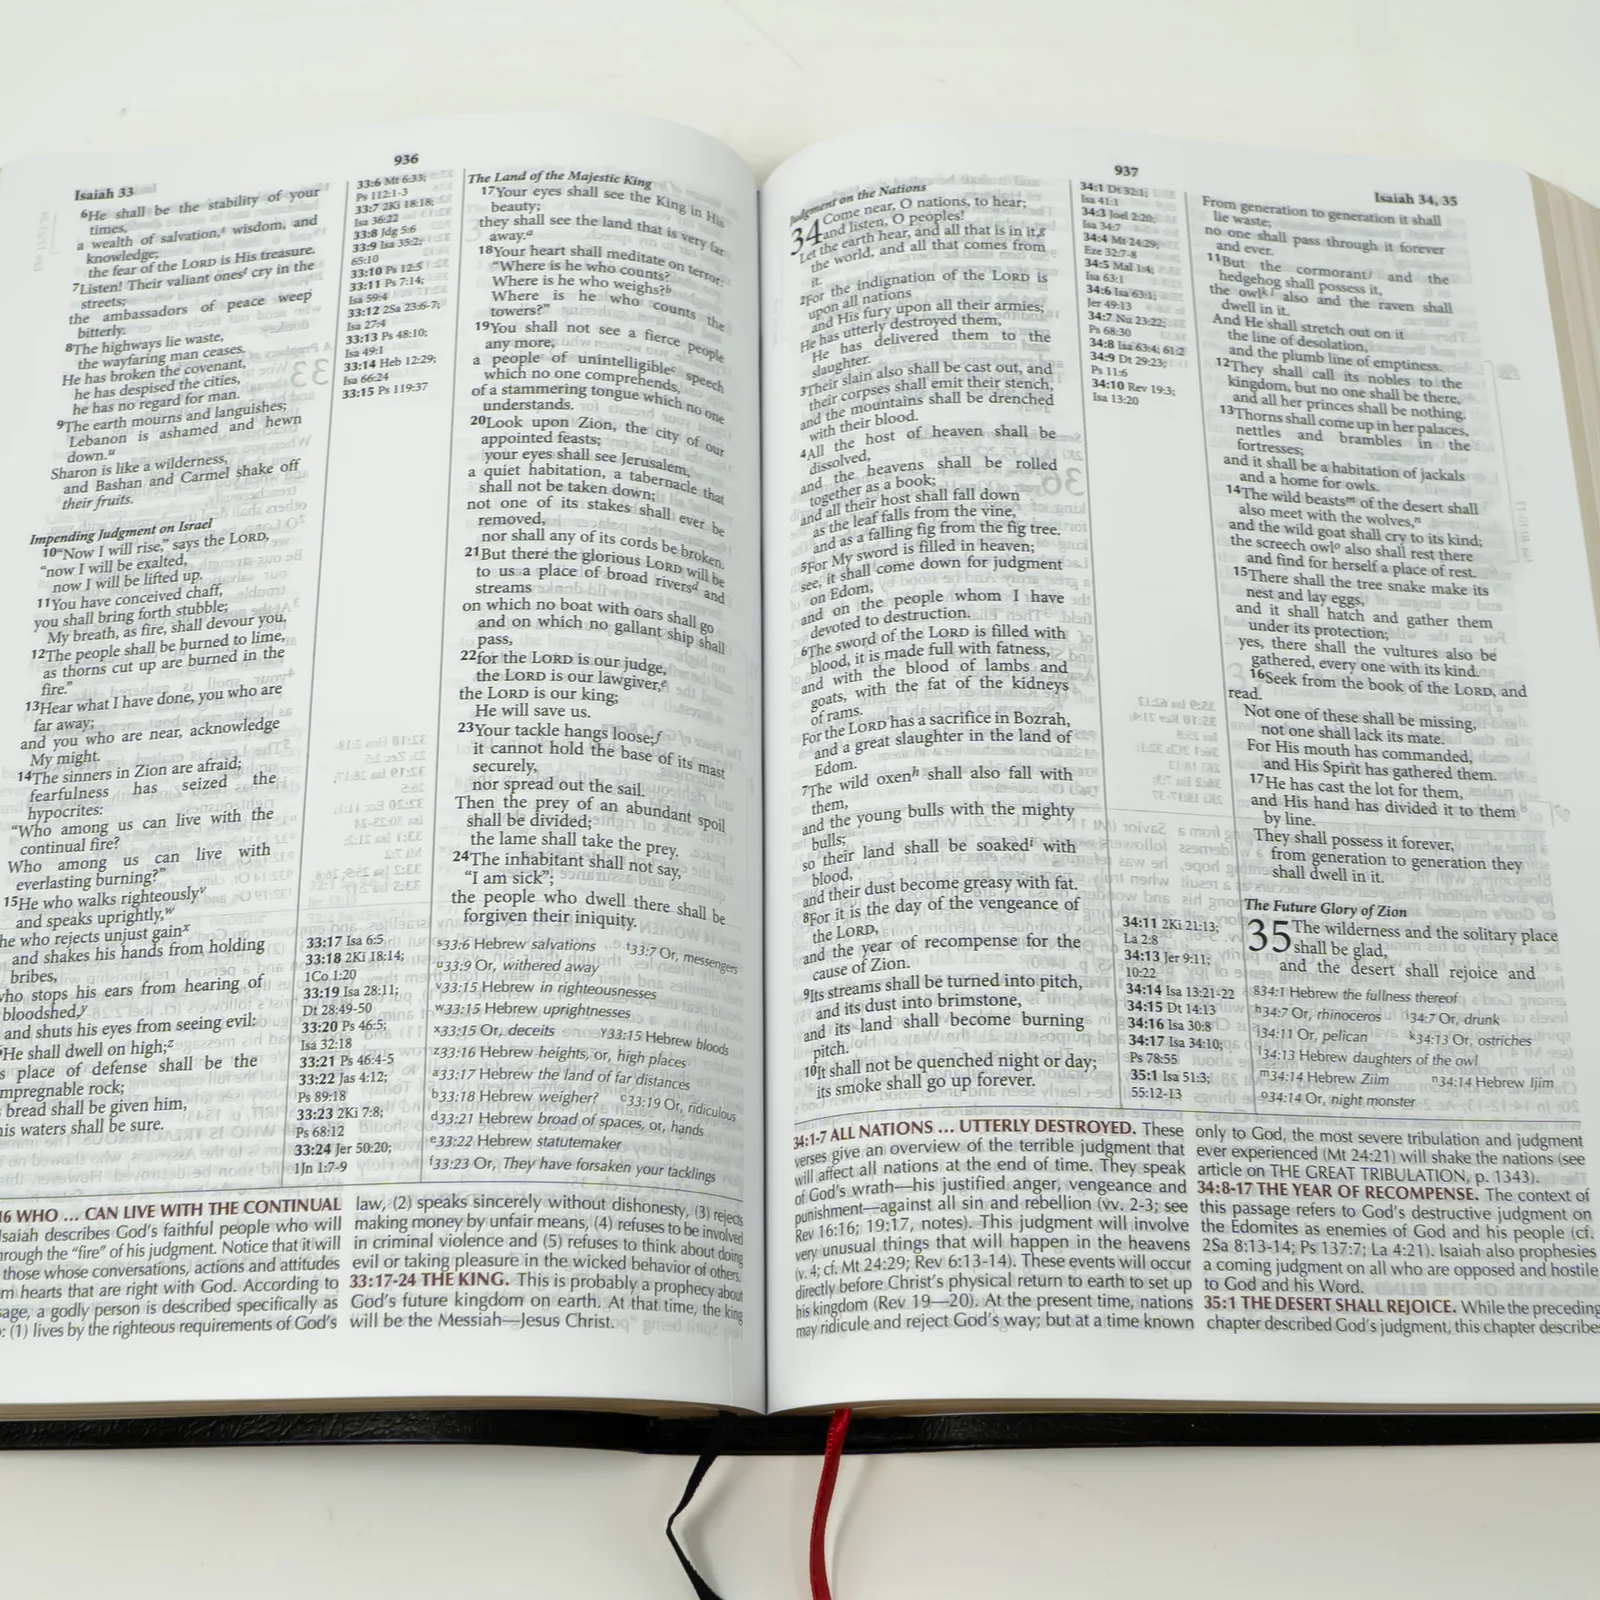 936
Isaiah 33
6He shall be the stability of your
times,
a wealth of salvation,s wisdom, and
knowledge;
the fear of the LORD is His treasure.
7Listen! Their valiant onest cry in the
streets;
the ambassadors of peace weep
bitterly.
8The highways lie waste,
the wayfaring man ceases.
He has broken the covenant,
he has despised the cities,
he has no regard for man.
9The earth mourns and languishes;
Lebanon is ashamed and hewn
down.u
Sharon is like a wilderness,
and Bashan and Carmel shake off
their fruits.
Impending Judgment on Israel
10"Now I will rise," says the LORD,
"now I will be exalted,
now I will be lifted up.
11You have conceived chaff,
you shall bring forth stubble;
My breath, as fire, shall devour you.
12The people shall be burned to lime,
as thorns cut up are burned in the
fire."
13Hear what I have done, you who are
far away;
and you who are near, acknowledge
My might.
14The sinners in Zion are afraid;
fearfulness has seized the
hypocrites:
"Who among us can live with the
continual fire?
Who among us can live with
everlasting burning?"
15He who walks righteouslyv
and speaks uprightly,w
he who rejects unjust gainx
and shakes his hands from holding
bribes,
who stops his ears from hearing of
bloodshed,y
and shuts his eyes from seeing evil:
He shall dwell on high;z
place of defense shall be the
impregnable rock;
bread shall be given him,
his waters shall be sure.
33:6 Mt 6:33;
Ps 112:1-3
33:7 2Ki 18:18;
Isa 36:22
33:8 Jdg 5:6
33:9 Isa 35:2;
65:10
33:10 Ps 12:5
33:11 Ps 7:14;
Isa 59:4
33:12 2Sa 23:6-7;
Isa 27:4
33:13 Ps 48:10;
Isa 49:1
33:14 Heb 12:29;
Isa 66:24
33:15 Ps 119:37
33:17 Isa 6:5
33:18 2Ki 18:14;
1Co 1:20
33:19 Isa 28:11;
Dt 28:49-50
33:20 Ps 46:5;
Isa 32:18
33:21 Ps 46:4-5
33:22 Jas 4:12;
Ps 89:18
33:23 2Ki 7:8;
Ps 68:12
33:24 Jer 50:20;
1Jn 1:7-9
The Land of the Majestic King
17Your eyes shall see the King in His
beauty;
they shall see the land that is very far
away.a
18Your heart shall meditate on terror:
"Where is he who counts?
Where is he who weighs?b
Where is he who counts the
towers?"
19You shall not see a fierce people
any more,
a people of unintelligiblec speech
which no one comprehends,
of a stammering tongue which no one
understands.
20Look upon Zion, the city of our
appointed feasts;
your eyes shall see Jerusalem,
a quiet habitation, a tabernacle that
shall not be taken down;
not one of its stakes shall ever be
removed,
nor shall any of its cords be broken.
21But there the glorious LORD will be
to us a place of broad riversd and
streams
on which no boat with oars shall go
and on which no gallant ship shall
pass,
22for the LORD is our judge,
the LORD is our lawgiver,e
the LORD is our king;
He will save us.
23Your tackle hangs loose;f
it cannot hold the base of its mast
securely,
nor spread out the sail.
Then the prey of an abundant spoil
shall be divided;
the lame shall take the prey.
24The inhabitant shall not say,
"I am sick";
the people who dwell there shall be
forgiven their iniquity.
s33:6 Hebrew salvations t33:7 Or, messengers
u33:9 Or, withered away
v33:15 Hebrew in righteousnesses
w33:15 Hebrew uprightnesses
x33:15 Or, deceits y33:15 Hebrew bloods
z33:16 Hebrew heights, or, high places
a33:17 Hebrew the land of far distances
b33:18 Hebrew weigher? c33:19 Or, ridiculous
d33:21 Hebrew broad of spaces, or, hands
e33:22 Hebrew statutemaker
f33:23 Or, They have forsaken your tacklings
16 WHO ... CAN LIVE WITH THE CONTINUAL
Isaiah describes God's faithful people who will
through the "fire" of his judgment. Notice that it will
those whose conversations, actions and attitudes
hearts that are right with God. According to
a godly person is described specifically as
(1) lives by the righteous requirements of God's
law, (2) speaks sincerely without dishonesty, (3) rejects
making money by unfair means, (4) refuses to be involved
in criminal violence and (5) refuses to think about doing
evil or taking pleasure in the wicked behavior of others.
33:17-24 THE KING. This is probably a prophecy about
God's future kingdom on earth. At that time, the king
will be the Messiah—Jesus Christ.
937
Isaiah 34, 35
Judgment on the Nations
34 Come near, O nations, to hear;
and listen, O peoples!
Let the earth hear, and all that is in it,g
the world, and all that comes from
it.
2For the indignation of the LORD is
upon all nations
and His fury upon all their armies;
He has utterly destroyed them,
He has delivered them to the
slaughter.
3Their slain also shall be cast out, and
their corpses shall emit their stench,
and the mountains shall be drenched
with their blood.
4All the host of heaven shall be
dissolved,
and the heavens shall be rolled
together as a book;
and all their host shall fall down
as the leaf falls from the vine,
and as a falling fig from the fig tree.
5For My sword is filled in heaven;
see, it shall come down for judgment
on Edom,
and on the people whom I have
devoted to destruction.
6The sword of the LORD is filled with
blood, it is made full with fatness,
and with the blood of lambs and
goats, with the fat of the kidneys
of rams.
For the LORD has a sacrifice in Bozrah,
and a great slaughter in the land of
Edom.
7The wild oxenh shall also fall with
them,
and the young bulls with the mighty
bulls;
so their land shall be soakedi with
blood,
and their dust become greasy with fat.
8For it is the day of the vengeance of
the LORD,
and the year of recompense for the
cause of Zion.
9Its streams shall be turned into pitch,
and its dust into brimstone,
and its land shall become burning
pitch.
10It shall not be quenched night or day;
its smoke shall go up forever.
34:1 Dt 32:1;
Isa 41:1
34:3 Joel 2:20;
Isa 34:7
34:4 Mt 24:29;
Eze 32:7-8
34:5 Mal 1:4;
Isa 63:1
34:6 Isa 63:1;
Jer 49:13
34:7 Nu 23:22;
Ps 68:30
34:8 Isa 63:4; 61:2
34:9 Dt 29:23;
Ps 11:6
34:10 Rev 19:3;
Isa 13:20
34:11 2Ki 21:13;
La 2:8
34:13 Jer 9:11;
10:22
34:14 Isa 13:21-22
34:15 Dt 14:13
34:16 Isa 30:8
34:17 Isa 34:10;
Ps 78:55
35:1 Isa 51:3;
55:12-13
From generation to generation it shall
lie waste;
no one shall pass through it forever
and ever.
11But the cormorantj and the
hedgehog shall possess it,
the owlk also and the raven shall
dwell in it.
And He shall stretch out on it
the line of desolation,
and the plumb line of emptiness.
12They shall call its nobles to the
kingdom, but no one shall be there,
and all her princes shall be nothing.
13Thorns shall come up in her palaces,
nettles and brambles in the
fortresses;
and it shall be a habitation of jackals
and a home for owls.
14The wild beastsm of the desert shall
also meet with the wolves,n
and the wild goat shall cry to its kind;
the screech owlo also shall rest there
and find for herself a place of rest.
15There shall the tree snake make its
nest and lay eggs,
and it shall hatch and gather them
under its protection;
yes, there shall the vultures also be
gathered, every one with its kind.
16Seek from the book of the LORD, and
read.
Not one of these shall be missing,
not one shall lack its mate.
For His mouth has commanded,
and His Spirit has gathered them.
17He has cast the lot for them,
and His hand has divided it to them
by line.
They shall possess it forever,
from generation to generation they
shall dwell in it.
The Future Glory of Zion
35 The wilderness and the solitary place
shall be glad,
and the desert shall rejoice and
g34:1 Hebrew the fullness thereof
h34:7 Or, rhinoceros i34:7 Or, drunk
j34:11 Or, pelican k34:13 Or, ostriches
l34:13 Hebrew daughters of the owl
m34:14 Hebrew Ziim n34:14 Hebrew Ijim
o34:14 Or, night monster
34:1-7 ALL NATIONS ... UTTERLY DESTROYED. These
verses give an overview of the terrible judgment that
will affect all nations at the end of time. They speak
of God's wrath—his justified anger, vengeance and
punishment—against all sin and rebellion (vv. 2-3; see
Rev 16:16; 19:17, notes). This judgment will involve
very unusual things that will happen in the heavens
(v. 4; cf. Mt 24:29; Rev 6:13-14). These events will occur
directly before Christ's physical return to earth to set up
his kingdom (Rev 19—20). At the present time, nations
may ridicule and reject God's way; but at a time known
only to God, the most severe tribulation and judgment
ever experienced (Mt 24:21) will shake the nations (see
article on THE GREAT TRIBULATION, p. 1343).
34:8-17 THE YEAR OF RECOMPENSE. The context of
this passage refers to God's destructive judgment on
the Edomites as enemies of God and his people (cf.
2Sa 8:13-14; Ps 137:7; La 4:21). Isaiah also prophesies
a coming judgment on all who are opposed and hostile
to God and his Word.
35:1 THE DESERT SHALL REJOICE. While the preceding
chapter described God's judgment, this chapter describe